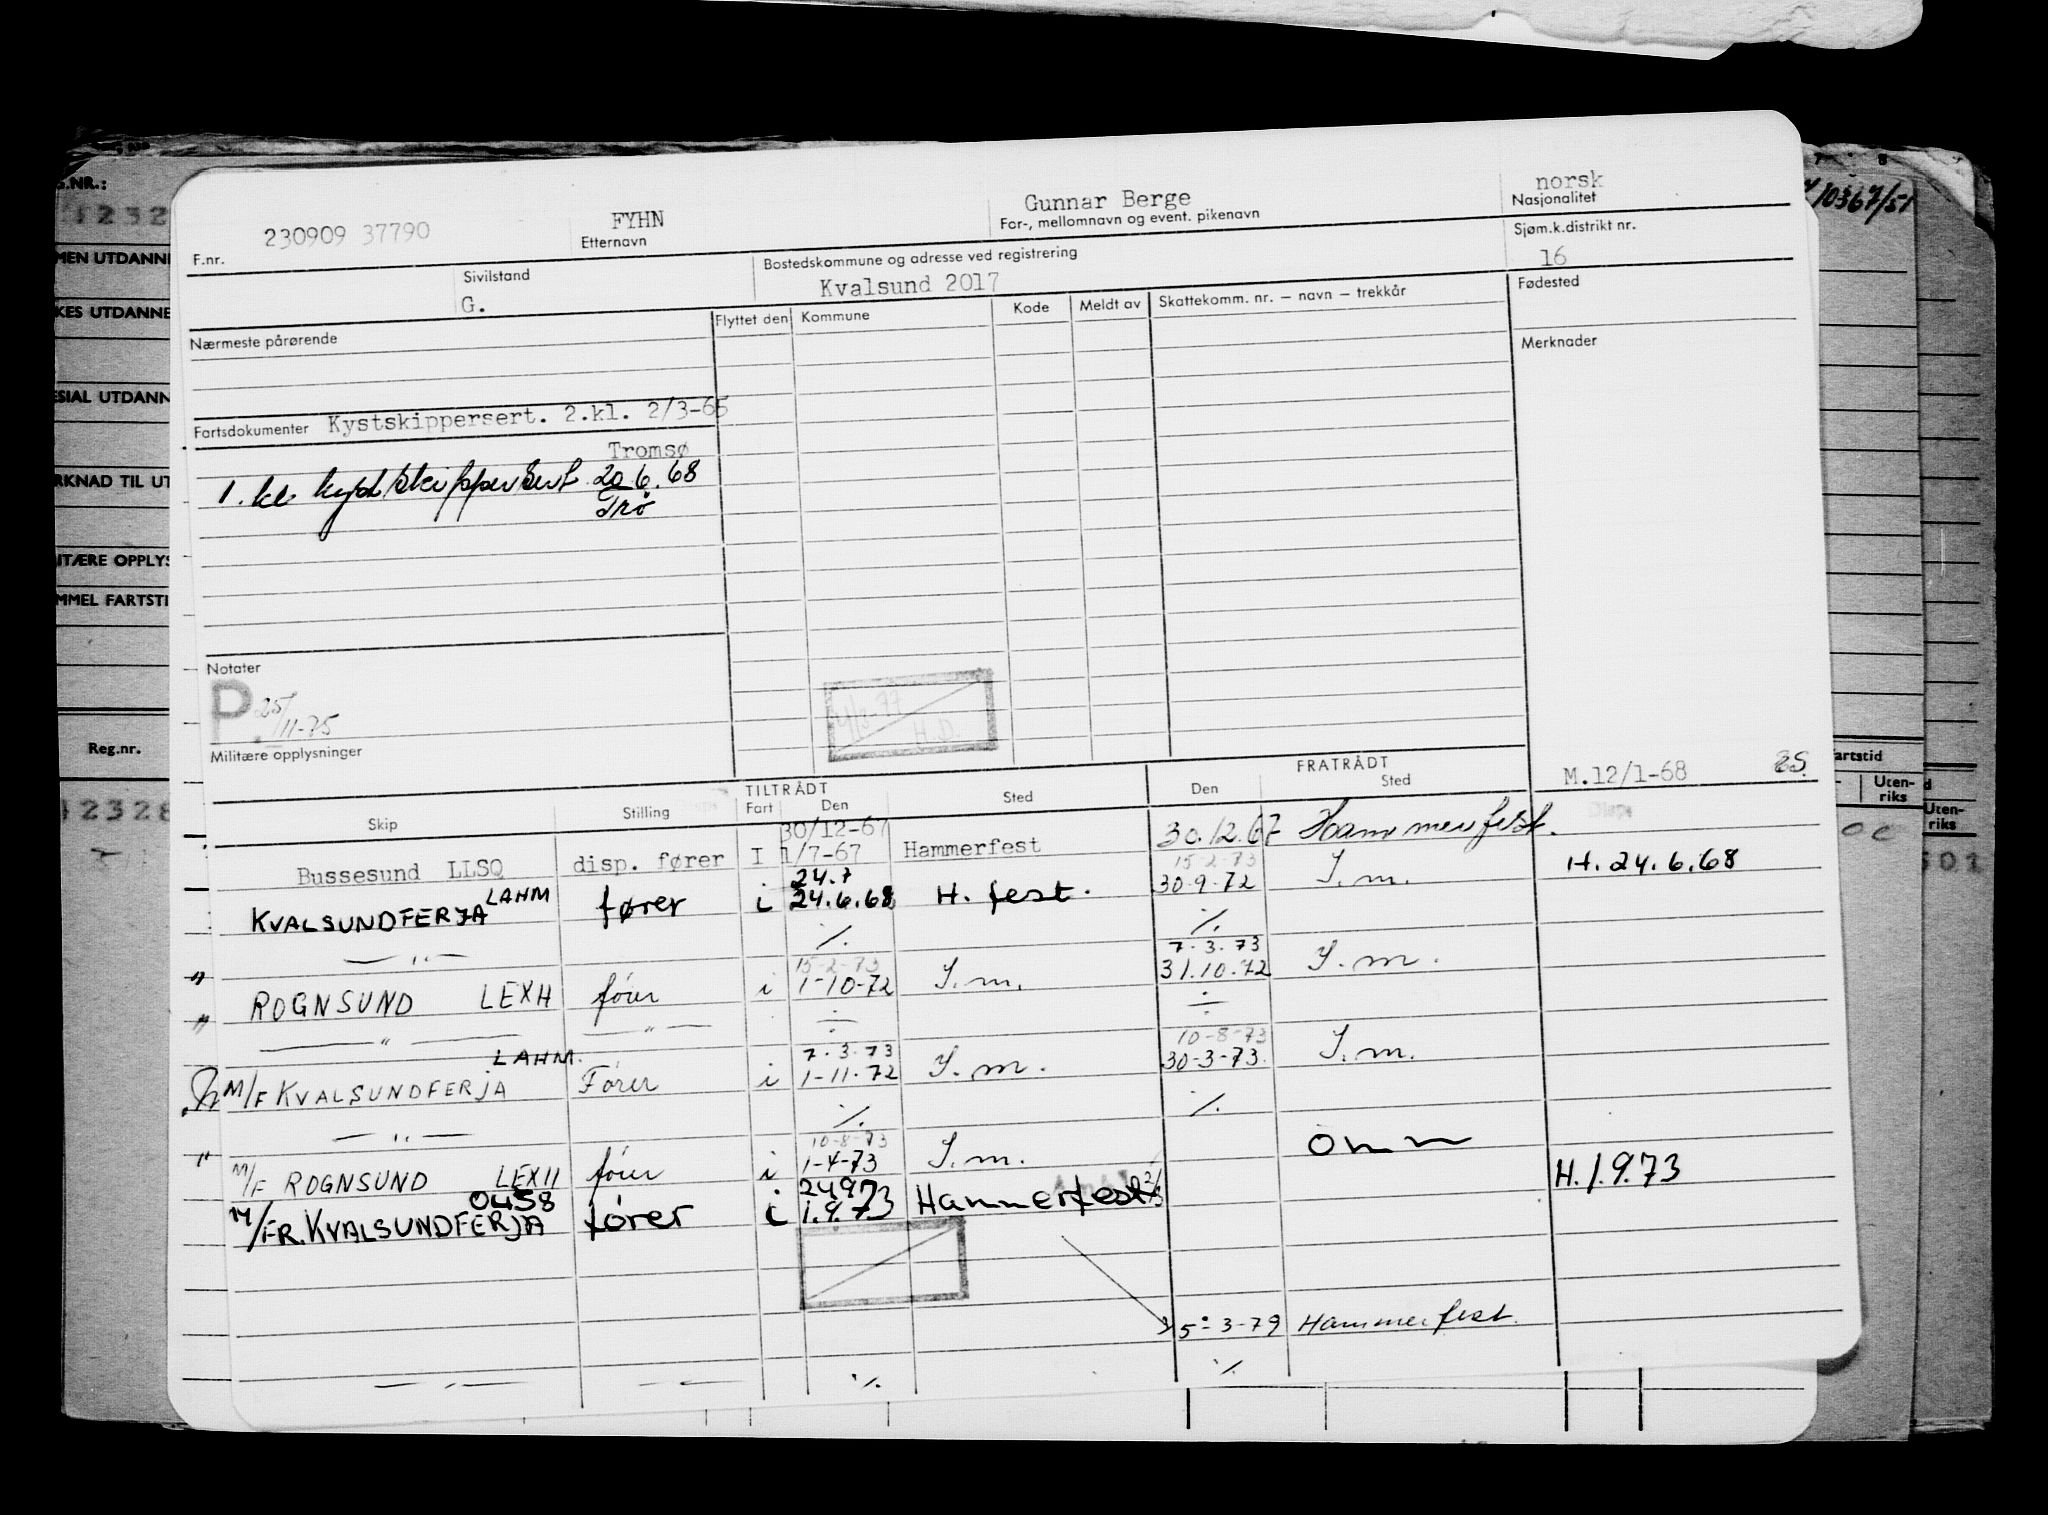 230909 37790
F.nr.
FYHN
Etternavn
Gunnar Berge
For-, mellomnavn og event. pikenavn
norsk
Nasjonalitet
10367/51
Sivilstand
G.
Bostedskommune og adresse ved registrering
Kvalsund 2017
Sjøm.k.distrikt nr.
16
Nærmeste pårørende
Flyttet den
Kommune
Kode
Meldt av
Skattekomm. nr. – navn – trekkår
Fødested
Merknader
Fartsdokumenter Kystskippersert. 2.kl. 2/3-65
Tromsø
1. kl kystskippersert 20.6.68
Trø
Notater
P. 25/11-75
H.D.
Militære opplysninger
Reg.nr.
TILTRÅDT
FRATRÅDT
M.12/1-68
Skip
Stilling
Fart
Den
Sted
Den
Sted
fartstid
Uten-
riks
Uten-
riks
30/12-67
Bussesund LLSQ disp. fører I 1/7-67 Hammerfest 30.12.67 Hammerfest.
LAHM 24.7 15-2-73
KVALSUNDFERJA fører i 24.6.68 H. fest. 30-9-72 S.m. H. 24.6.68
— " — ·/. ·/.
15-2-73 7.3.73
" ROGNSUND LEXH fører i 1-10-72 S.m. 31.10.72 S.m.
" — " — — " — ÷ ÷
LAHM. 7.3.73 10-8-73
M/F KVALSUNDFERJA Fører i 1-11-72 S.m. 30-3-73. S.m.
— " — ·/. ·/.
10-8-73
" M/F ROGNSUND LEXII fører i 1-4-73 S.m. Omm
0458 24.9.73
M/FR. KVALSUNDFERJA fører i 1.9.73 Hammerfest H. 1.9.73
5-3-79 Hammerfest.
— " — — " — ·/. ·/.